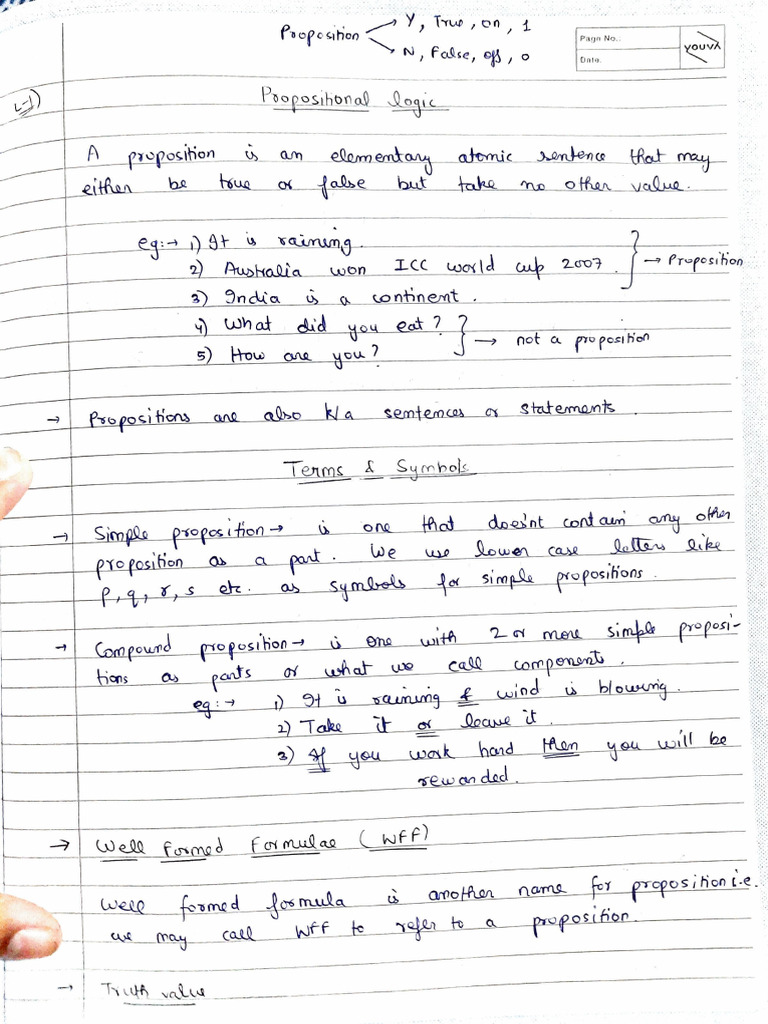 Proposition → Y, True, on, 1
→ N, False, off, 0
Page No.:
Date:
YOUVA
L-1)
Propositional logic
A proposition is an elementary atomic sentence that may
either be true or false but take no other value.
eg:→ 1) It is raining.
2) Australia won ICC world cup 2007. → Proposition
3) India is a continent.
4) What did you eat?
5) How are you? → not a proposition
→ Propositions are also k/a sentences or statements.
Terms & Symbols
→ Simple proposition → is one that does'nt contain any other
proposition as a part. We use lower case letters like
p, q, r, s etc. as symbols for simple propositions.
→ Compound proposition → is one with 2 or more simple proposi-
tions as parts or what we call components.
eg:→ 1) It is raining & wind is blowing.
2) Take it or leave it.
3) If you work hard then you will be
rewarded.
→ Well Formed Formulae (WFF)
Well formed formula is another name for proposition i.e.
we may call WFF to refer to a proposition.
→ Truth value